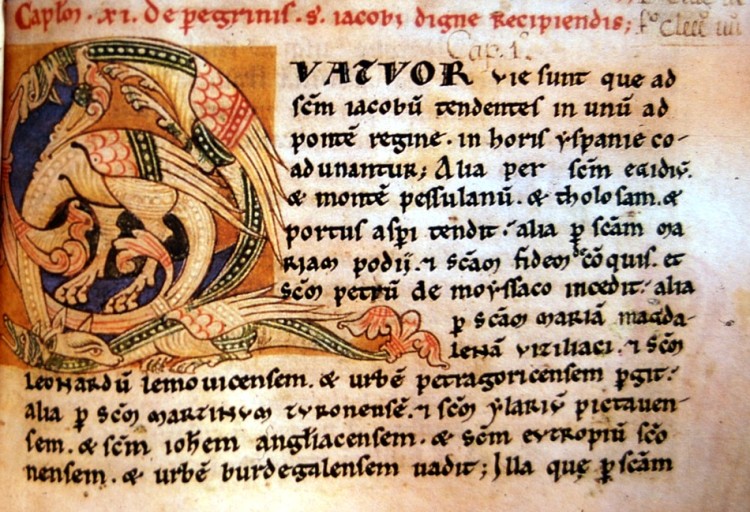 Caplm̄ .xi. de pegrinis .s. iacobi digne Recipiendis;
Cap. 1.
QVATVOR vie sunt que ad
sc̄m iacobū tendentes in unū ad
pontē regine . in horis yspanie co-
adunantur; Alia per sc̄m egidiū.
& montē pessulanū . & tholosam . &
portus aspi tendit . alia p̄ sc̄am ma
RIAm podii . ⁊ sc̄am fidem de cōquis . et
Sc̄m petrū de moyssaco incedit . alia
p̄ sc̄am MARIĀ magda-
lenā viziliaci . ⁊ Sc̄m
leonardū lemouicensem . & urbē petragoricensem p̄git .
alia p̄ sc̄m MARTINVM TVRonensē . ⁊ sc̄m ylariū pictauen
sem . & sc̄m ioh̄em angliacensem . & sc̄m evtropiū sc̄o
nensem . & urbē burdegalensem uadit; Illa quę p̄ sc̄am